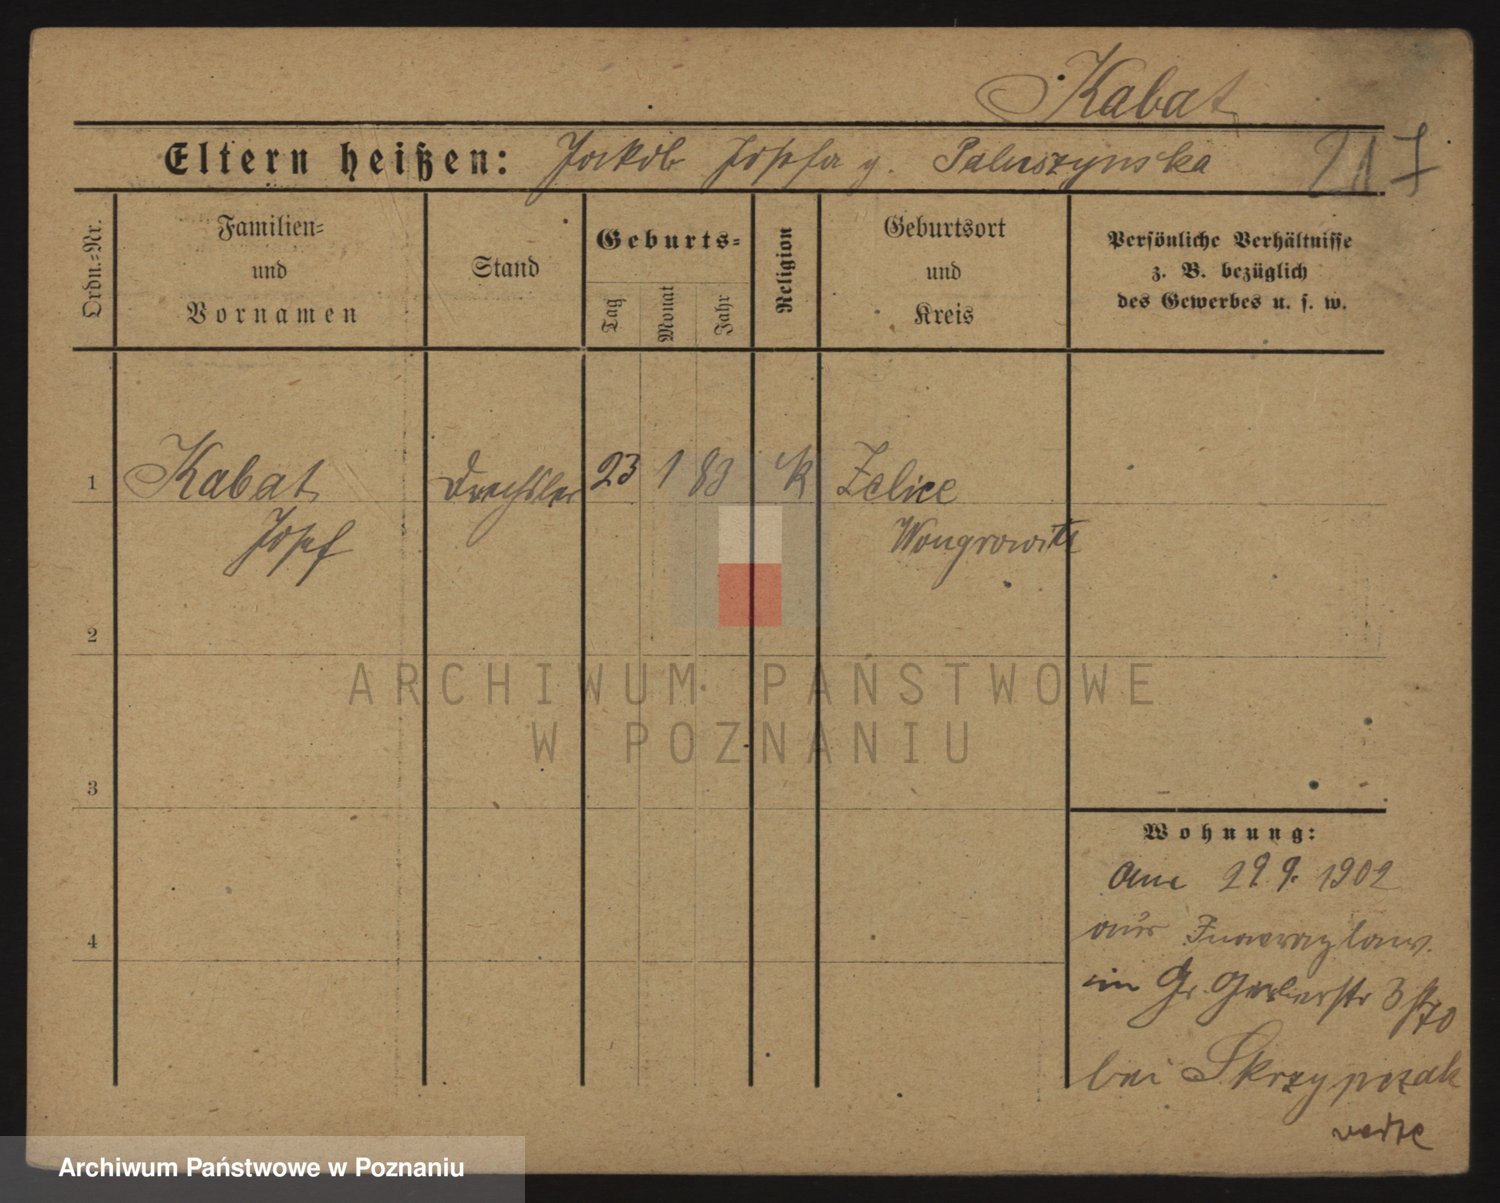 Kabat
Eltern heißen: Jakob Josefa g. Paluszynska
217
Ordn.-Nr.
Familien-
und
Vornamen
Stand
Geburts-
Tag
Monat
Jahr
Religion
Geburtsort
und
Kreis
Persönliche Verhältnisse
z. B. bezüglich
des Gewerbes u. s. w.
1 Kabat Drechsler 23 1 83 K Zelice
Josef Wongrowitz
2
ARCHIWUM PAŃSTWOWE
W POZNANIU
3
Wohnung:
Am 29 9. 1902
aus Inowrazlaw.
in Gr. Gerberstr 3
4
bei Skrzypczak
Archiwum Państwowe w Poznaniu